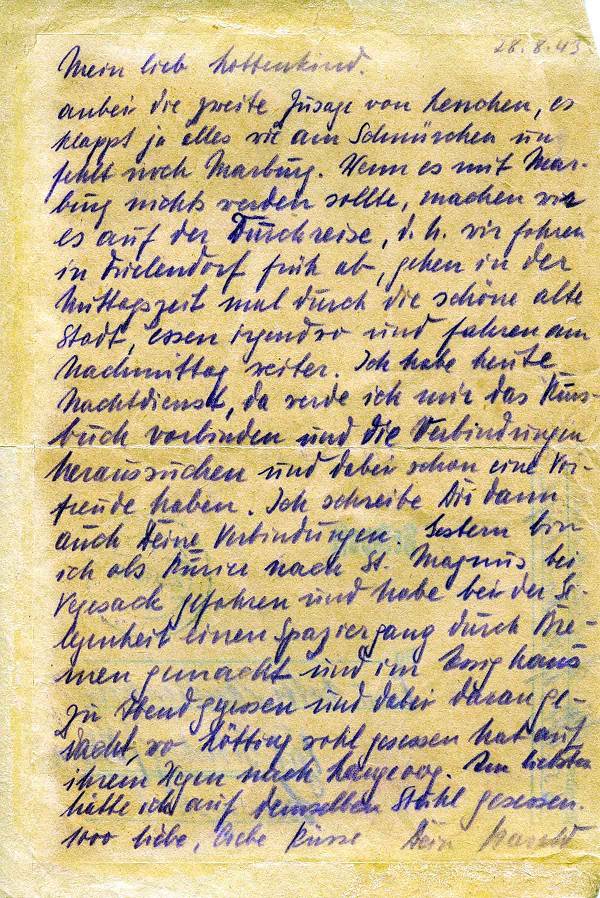 28.8.43
Mein lieb Lottenkind.
anbei die zweite Zusage von Lenchen, es
klappt ja alles wie am Schnürchen un
fehlt noch Marburg. Wenn es mit Mar-
burg nichts werden sollte, machen wir
es auf der Durchreise, d. h. wir fahren
in früh ab, gehen in der
Mittagszeit mal durch die schöne alte
Stadt, essen irgendwo und fahren am
Nachmittag weiter. Ich habe heute
Nachtdienst, da werde ich mir das Kurs-
buch vorbinden und die Verbindungen
heraussuchen und dabei schon eine Vor-
freude haben. Ich schreibe Dir dann
auch Deine Verbindungen. Gestern bin
ich als Kurier nach St. Magnus bei
Vegesack gefahren und habe bei der Ge-
legenheit einen Spaziergang durch Bre-
men gemacht und im Essighaus
zu Abend gegessen und dabei daran ge-
dacht, wo Lötting wohl gesessen hat auf
ihrem Wege nach Langeoog. Am liebsten
hätte ich auf demselben Stuhl gesessen.
1000 liebe, liebe Küsse Dein Harald